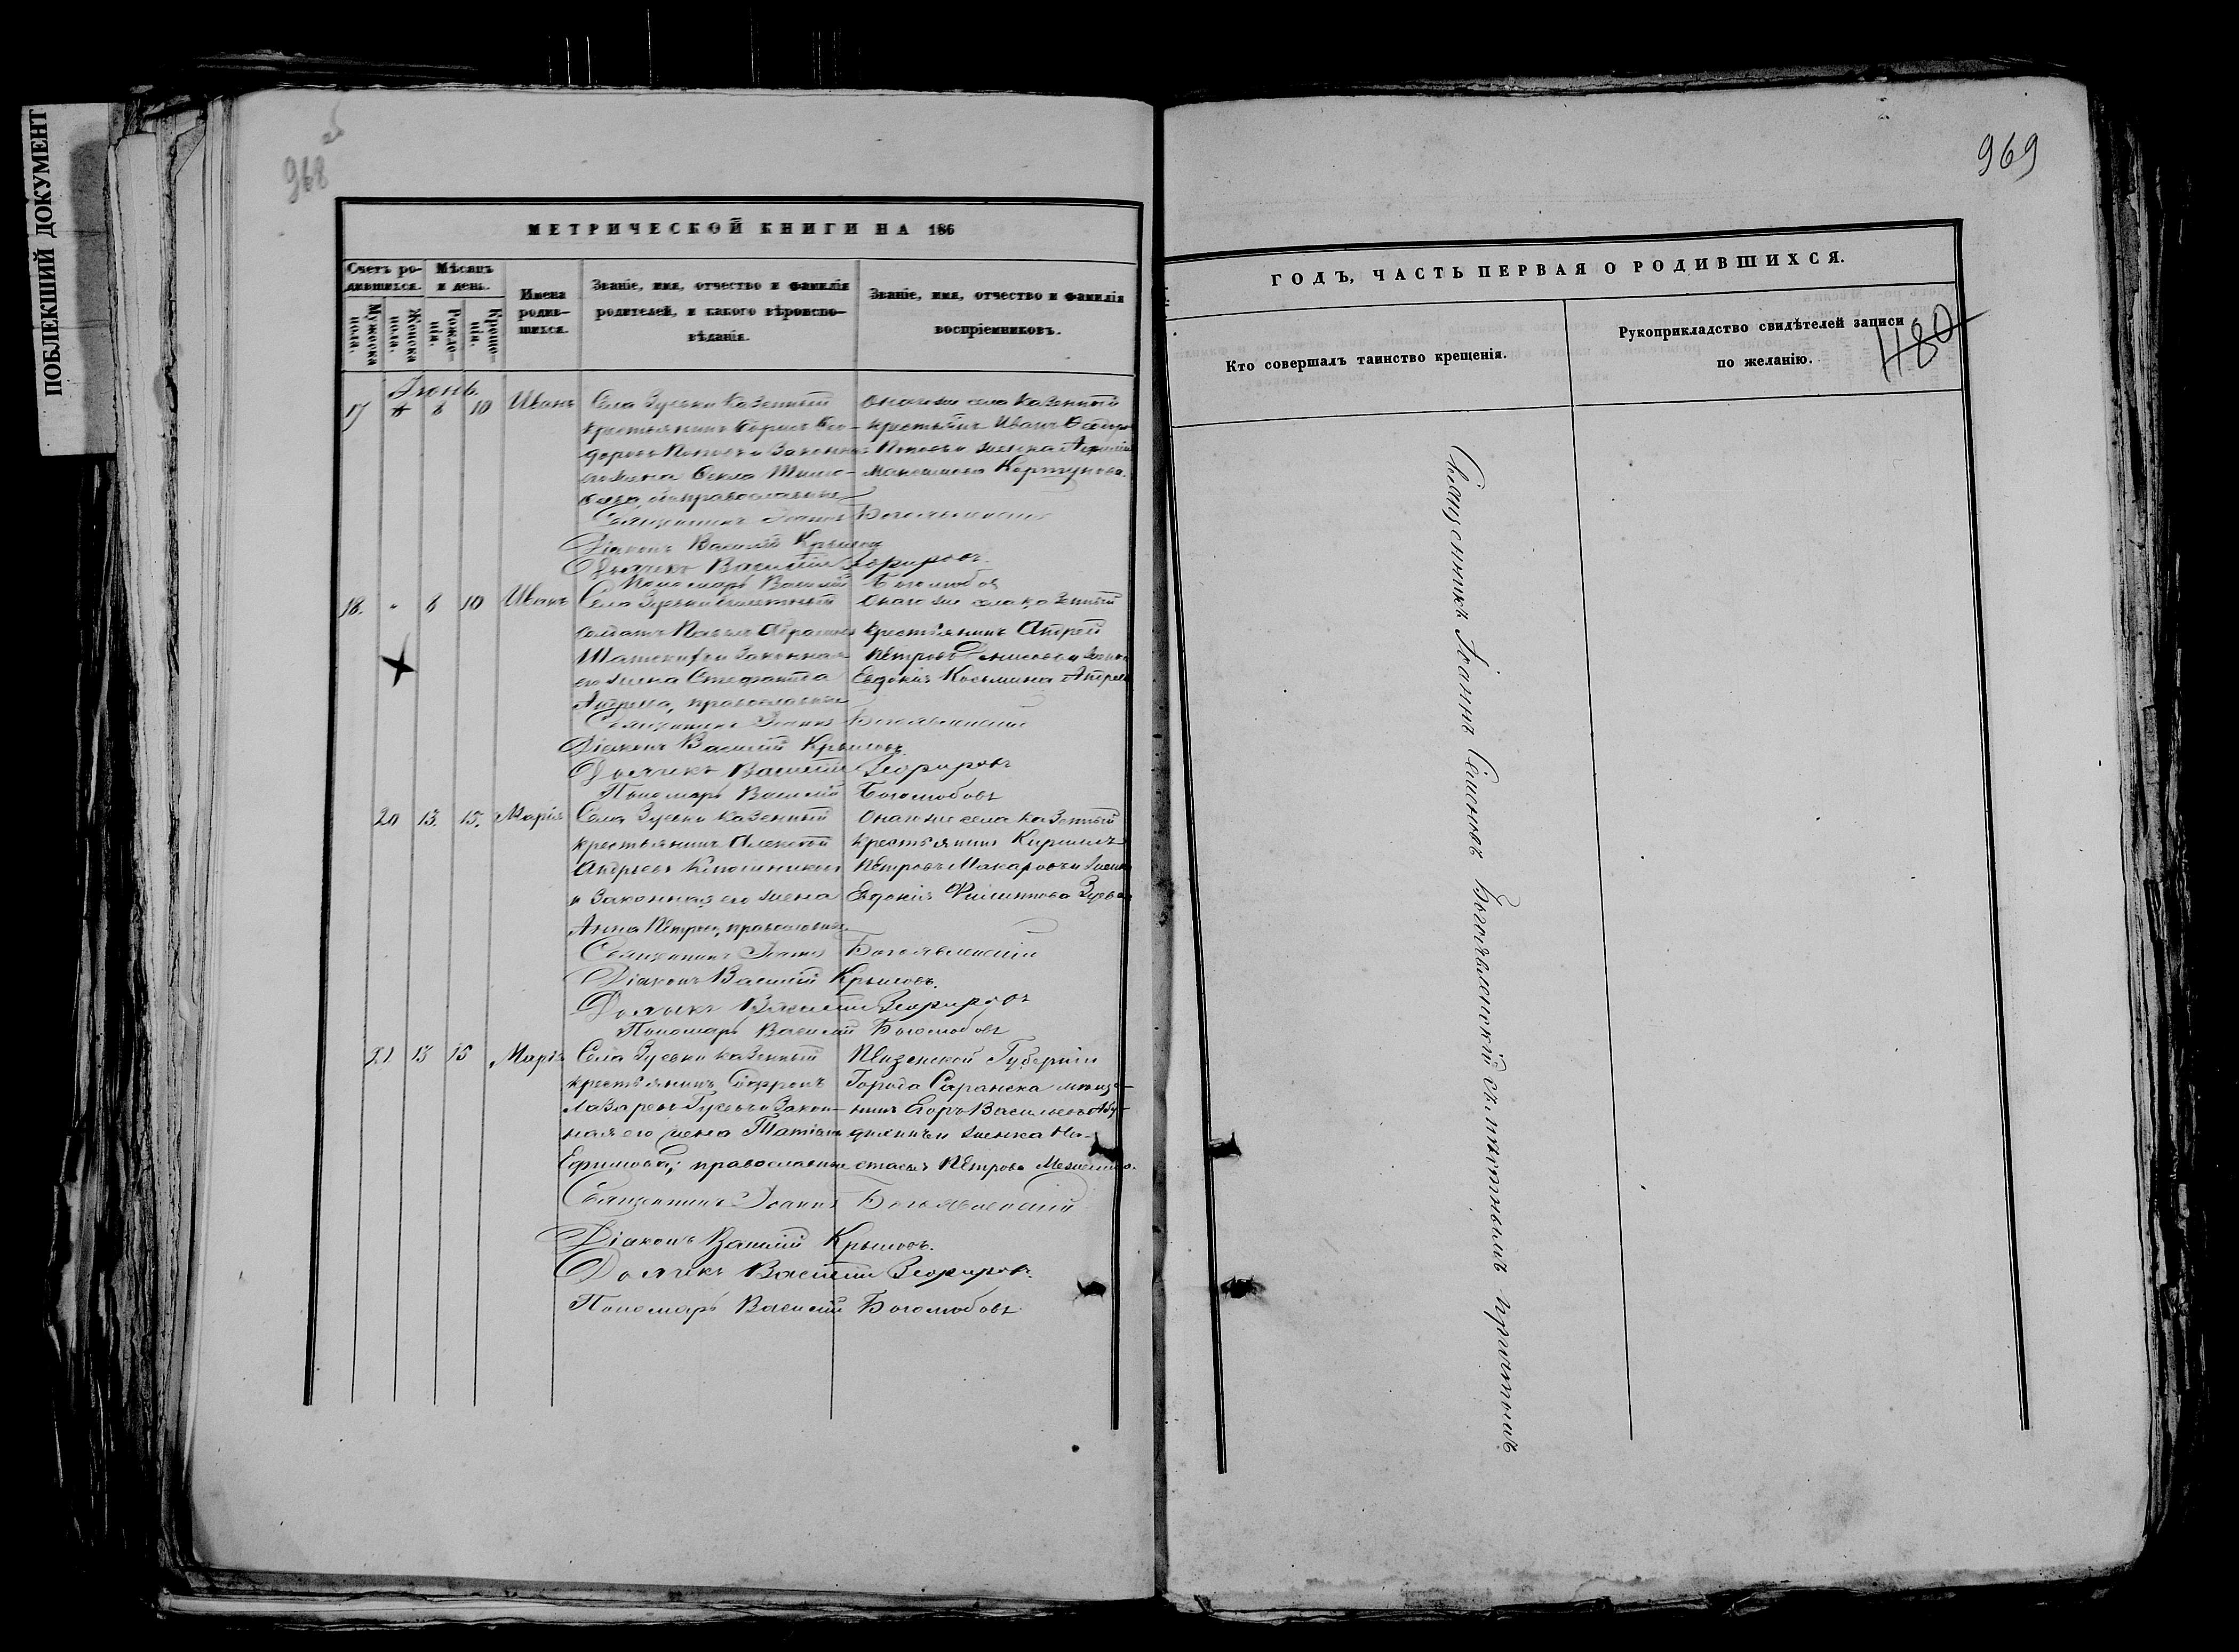 ПОБЛЕКШИЙ ДОКУМЕНТ
968
об
969
МЕТРИЧЕСКОЙ КНИГИ НА 186
Счетъ ро-
дившихся.
Мѣсяцъ
и день.
Мужеска
пола.
Женска
пола.
Рожде-
нія.
Креще-
нія.
Имена
родив-
шихся.
Званіе, имя, отчество и фамилія
родителей, и какого вѣроиспо-
вѣданія.
Званіе, имя, отчество и фамилія
воспріемниковъ.
Іюнь.
17 8 10 Иванъ Села Зуевки казенный
крестьянинъ Борисъ Ѳео-
доровъ Поповъ и законная
его жена Ѳекла Тимо-
православные
онаго же села казенный
крестьянинъ Иванъ
Поповъ и женка
Максимова
Священникъ Іоаннъ Богоявленскій
Діаконъ Василій Крыловъ
Дьячекъ Василій Зефировъ.
Пономарь Василій Боголюбов
18. " 8 10 Иванъ Села Зуевки билетный
солдатъ Павелъ Абрамовъ
и законная
его жена Стефанида
Андреева, православные
онаго же села казенный
крестьянинъ Андрей
Петровъ Денисовъ и женка
Евдокія Косьмина
Священникъ Іоаннъ Богоявленскій
Діаконъ Василій Крыловъ.
Дьячекъ Василій Зефировъ
Пономарь Василій Боголюбовъ
20 13. 15. Марія Села Зуевки казенный
крестьянинъ Алексѣй
Андреевъ
и законная его жена
Анна Петрова, православные
онаго же села казенный
крестьянинъ Кириллъ
Петровъ Макаровъ и женка
Евдокія Филиппова Зуева
Священникъ Іоаннъ Богоявленскій
Діаконъ Василій Крыловъ.
Дьячекъ Василій Зефировъ
Пономарь Василій Боголюбовъ
21 13 15 Марія Села Зуевки казенный
крестьянинъ Софронъ
Лазаревъ Гусевъ и закон-
ная его жена Татіана
Ефимова; православные
Пензенской Губерніи
Города Саранска мѣща-
нинъ Егоръ Васильевъ
и женка На-
стасья Петрова
Священникъ Іоаннъ Богоявленскій
Діаконъ Василій Крыловъ.
Дьячекъ Василій Зефировъ.
Пономарь Василій Боголюбовъ
ГОДЪ, ЧАСТЬ ПЕРВАЯ О РОДИВШИХСЯ.
Кто совершалъ таинство крещенія.
Рукоприкладство свидѣтелей записи
по желанію.
480
Священникъ Іоаннъ Семеновъ Богоявленскій съ причтомъ